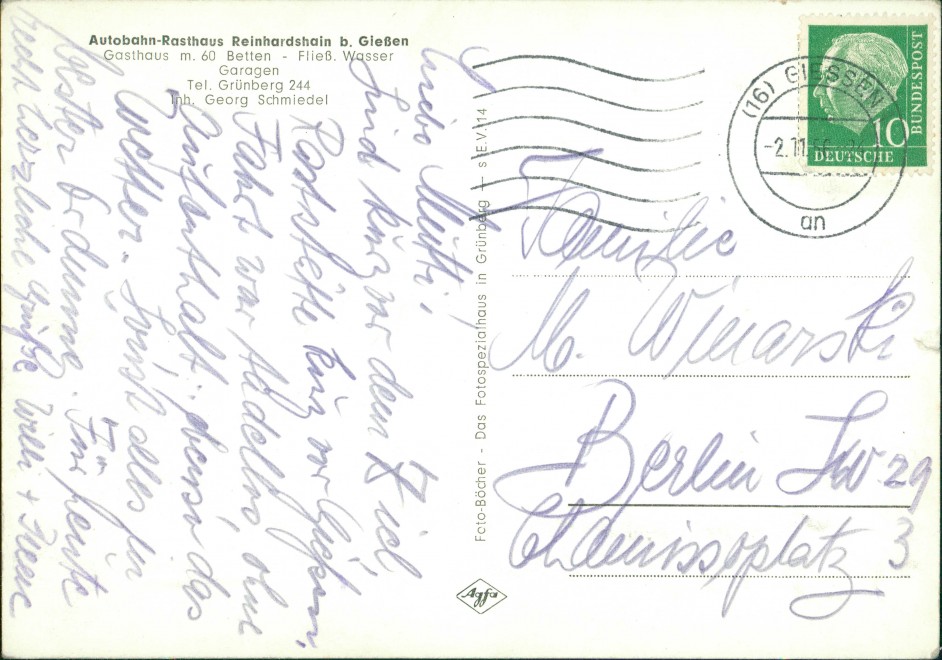 Autobahn-Rasthaus Reinhardshain b. Gießen
Gasthaus m. 60 Betten - Fließ. Wasser
Garagen
Tel. Grünberg 244
Inh. Georg Schmiedel
Liebe Mutti,
Sind kurz vor dem Ziel
Raststätte kurz vor Gießen,
Fahrt war tadellos ohne
Aufenthalt. ebenso das
Wetter. Sonst alles in
bester Ordnung. Für heute
recht herzliche Grüße Willi +
Foto-Böcher - Das Fotospezialhaus in Grünberg — s E.V.114
Agfa
(16) GIESSEN
-2.11.56
an
10
DEUTSCHE
BUNDESPOST
Familie
M. Winarski
Berlin SW 29
Chamissoplatz 3